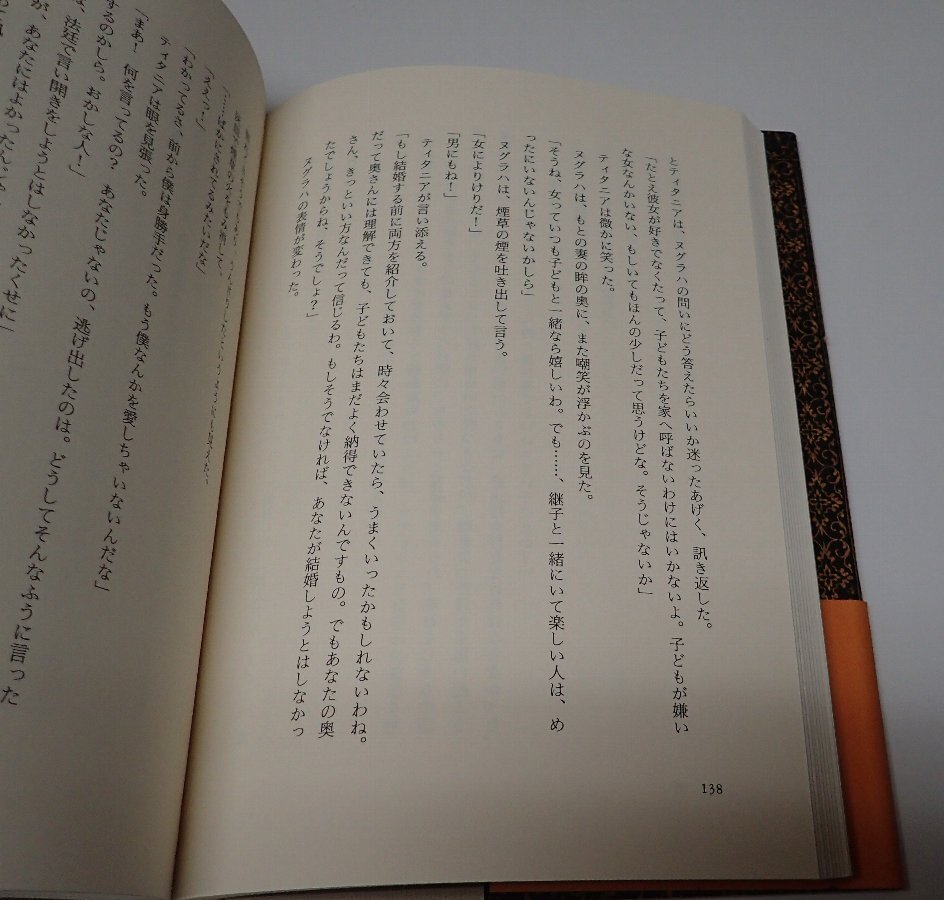 とティタニアは、ヌグラハの問いにどう答えたらいいか迷ったあげく、訊き返した。
「たとえ彼女が好きでなくたって、子どもたちを家へ呼ばないわけにはいかないよ。子どもが嫌い
な女なんかいない、もしいてもほんの少しだって思うけどな。そうじゃないか」
ティタニアは微かに笑った。
ヌグラハは、もとの妻の眸の奥に、また嘲笑が浮かぶのを見た。
「そうね、女っていつも子どもと一緒なら嬉しいわ。でも……、継子と一緒にいて楽しい人は、め
ったにいないんじゃないかしら」
ヌグラハは、煙草の煙を吐き出して言う。
「女によりけりだ！」
「男にもね！」
ティタニアが言い添える。
「もし結婚する前に両方を紹介しておいて、時々会わせていたら、うまくいったかもしれないわね。
だって奥さんには理解できても、子どもたちはまだよく納得できないんですもの。でもあなたの奥
さん、きっといい方なんだって信じるわ。もしそうでなければ、あなたが結婚しようとはしなかっ
たでしょうからね、そうでしょ？」
ヌグラハの表情が変わった。
138
「……ばかにされてるみたいだな」
「ええっ！」
「わかってるさ、前から僕は身勝手だった。もう僕なんかを愛しちゃいないんだな」
ティタニアは眼を見張った。
「まあ！　何を言ってるの？　あなたじゃないの、逃げ出したのは。どうしてそんなふうに言った
するのかしら。おかしな人！」
な、法廷で言い開きをしようとはしなかったくせに」
が、あなたにはよかったんじゃ